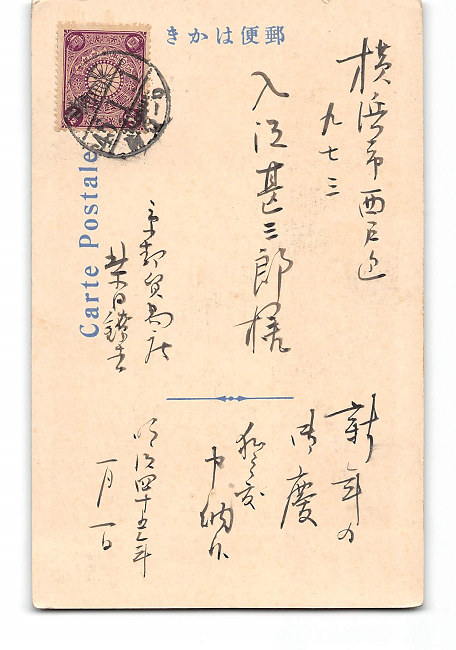 きかは便郵
Carte Postale
横浜市西戸辺
九七三
入江甚三郎様
京都貿易店
新年の
御慶
申納候
明治四十五年
一月一日